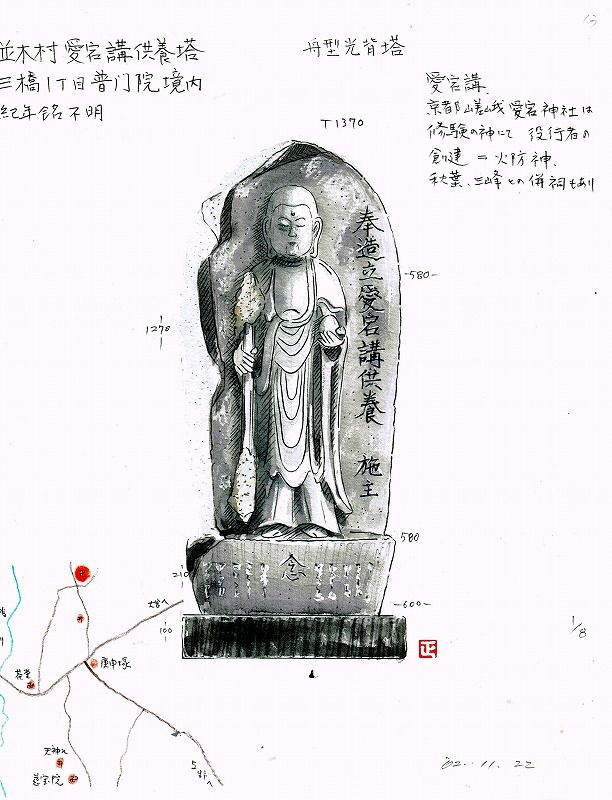 並木村 愛宕講供養塔
三橋1丁目普门院境内
紀年銘不明
舟型光背塔
13
愛宕講.
京都嵯峨愛宕神社は
修験の神にて 役行者の
創建 = 火防神.
秋葉、三峰との併祠もあり
T1370
-580-
1270
奉造立愛宕講供養 施主
580
210
念
-600-
100
正
1/8
大宮へ
庚申塚
天神社
慈宝院
'82.11.22